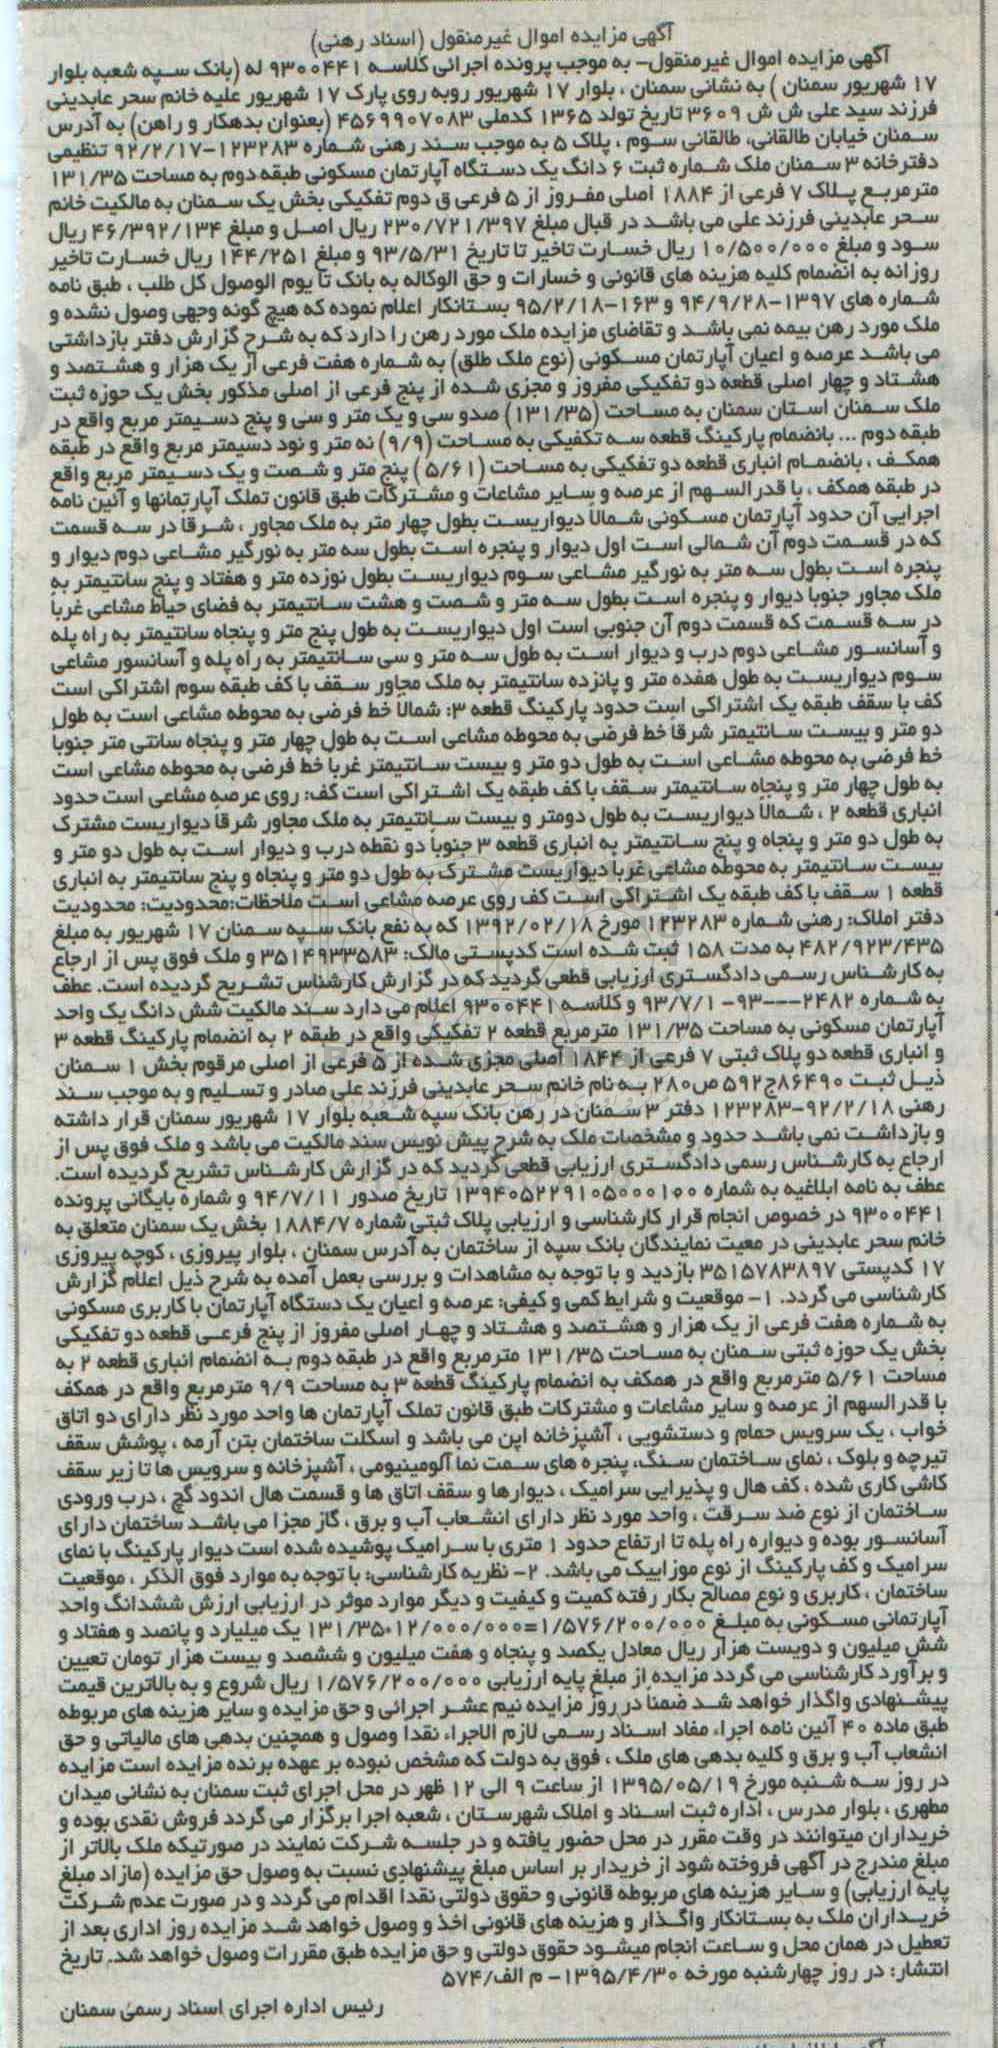 آگهی مزایده اموال غیرمنقول (اسناد رهنی)
آگهی مزایده اموال غیرمنقول- به موجب پرونده اجرائی کلاسه ۹۳۰۰۴۴۱ له (بانک سپه شعبه بلوار
۱۷ شهریور سمنان ) به نشانی سمنان ، بلوار ۱۷ شهریور روبه روی پارک ۱۷ شهریور علیه خانم سحر عابدینی
فرزند سید علی ش ش ۳۶۰۹ تاریخ تولد ۱۳۶۵ کدملی ۴۵۶۹۹۰۷۰۸۳ (بعنوان بدهکار و راهن) به آدرس
سمنان خیابان طالقانی، طالقانی سوم ، پلاک ۵ به موجب سند رهنی شماره ۱۲۳۲۸۳-۹۲/۲/۱۷ تنظیمی
دفترخانه ۳ سمنان ملک شماره ثبت ۶ دانگ یک دستگاه آپارتمان مسکونی طبقه دوم به مساحت ۱۳۱/۳۵
مترمربع پلاک ۷ فرعی از ۱۸۸۴ اصلی مفروز از ۵ فرعی ق دوم تفکیکی بخش یک سمنان به مالکیت خانم
سحر عابدینی فرزند علی می باشد در قبال مبلغ ۲۳۰/۷۲۱/۳۹۷ ریال اصل و مبلغ ۴۶/۳۹۲/۱۳۴ ریال
سود و مبلغ ۱۰/۵۰۰/۰۰۰ ریال خسارت تاخیر تا تاریخ ۹۳/۵/۳۱ و مبلغ ۱۴۴/۲۵۱ ریال خسارت تاخیر
روزانه به انضمام کلیه هزینه های قانونی و خسارات و حق الوکاله به بانک تا یوم الوصول کل طلب ، طبق نامه
شماره های ۱۳۹۷-۹۴/۹/۲۸ و ۱۶۳-۹۵/۲/۱۸ بستانکار اعلام نموده که هیچ گونه وجهی وصول نشده و
ملک مورد رهن بیمه نمی باشد و تقاضای مزایده ملک مورد رهن را دارد که به شرح گزارش دفتر بازداشتی
می باشد عرصه و اعیان آپارتمان مسکونی (نوع ملک طلق) به شماره هفت فرعی از یک هزار و هشتصد و
هشتاد و چهار اصلی قطعه دو تفکیکی مفروز و مجزی شده از پنج فرعی از اصلی مذکور بخش یک حوزه ثبت
ملک سمنان استان سمنان به مساحت (۱۳۱/۳۵) صدو سی و یک متر و سی و پنج دسیمتر مربع واقع در
طبقه دوم ... بانضمام پارکینگ قطعه سه تکفیکی به مساحت (۹/۹) نه متر و نود دسیمتر مربع واقع در طبقه
همکف ، بانضمام انباری قطعه دو تفکیکی به مساحت (۵/۶۱) پنج متر و شصت و یک دسیمتر مربع واقع
در طبقه همکف ، با قدرالسهم از عرصه و سایر مشاعات و مشترکات طبق قانون تملک آپارتمانها و آئین نامه
اجرایی آن حدود آپارتمان مسکونی شمالاً دیواریست بطول چهار متر به ملک مجاور ، شرقا در سه قسمت
که در قسمت دوم آن شمالی است اول دیوار و پنجره است بطول سه متر به نورگیر مشاعی دوم دیوار و
پنجره است بطول سه متر به نورگیر مشاعی سوم دیواریست بطول نوزده متر و هفتاد و پنج سانتیمتر به
ملک مجاور جنوبا دیوار و پنجره است بطول سه متر و شصت و هشت سانتیمتر به فضای حیاط مشاعی غربا
در سه قسمت که قسمت دوم آن جنوبی است اول دیواریست به طول پنج متر و پنجاه سانتیمتر به راه پله
و آسانسور مشاعی دوم درب و دیوار است به طول سه متر و سی سانتیمتر به راه پله و آسانسور مشاعی
سوم دیواریست به طول هفده متر و پانزده سانتیمتر به ملک مجاور سقف با کف طبقه سوم اشتراکی است
کف با سقف طبقه یک اشتراکی است حدود پارکینگ قطعه ۳: شمالا خط فرضی به محوطه مشاعی است به طول
دو متر و بیست سانتیمتر شرقا خط فرضی به محوطه مشاعی است به طول چهار متر و پنجاه سانتی متر جنوبا
خط فرضی به محوطه مشاعی است به طول دو متر و بیست سانتیمتر غربا خط فرضی به محوطه مشاعی است
به طول چهار متر و پنجاه سانتیمتر سقف با کف طبقه یک اشتراکی است کف: روی عرصه مشاعی است حدود
انباری قطعه ۲ ، شمالاً دیواریست به طول دومتر و بیست سانتیمتر به ملک مجاور شرقا دیواریست مشترک
به طول دو متر و پنجاه و پنج سانتیمتر به انباری قطعه ۳ جنوبا دو نقطه درب و دیوار است به طول دو متر و
بیست سانتیمتر به محوطه مشاعی غربا دیواریست مشترک به طول دو متر و پنجاه و پنج سانتیمتر به انباری
قطعه ۱ سقف با کف طبقه یک اشتراکی است کف روی عرصه مشاعی است ملاحظات:محدودیت: محدودیت
دفتر املاک: رهنی شماره ۱۲۳۲۸۳ مورخ ۱۳۹۲/۰۲/۱۸ که به نفع بانک سپه سمنان ۱۷ شهریور به مبلغ
۴۸۲/۹۲۳/۴۳۵ به مدت ۱۵۸ ثبت شده است کدپستی مالک: ۳۵۱۴۹۳۳۵۸۳ و ملک فوق پس از ارجاع
به کارشناس رسمی دادگستری ارزیابی قطعی گردید که در گزارش کارشناس تشریح گردیده است. عطف
به شماره ۲۴۸۲---۹۳-۹۳/۷/۱ و کلاسه ۹۳۰۰۴۴۱ اعلام می دارد سند مالکیت شش دانگ یک واحد
آپارتمان مسکونی به مساحت ۱۳۱/۳۵ مترمربع قطعه ۲ تفکیکی واقع در طبقه ۲ به انضمام پارکینگ قطعه ۳
و انباری قطعه دو پلاک ثبتی ۷ فرعی از ۱۸۴۴ اصلی مجزی شده از ۵ فرعی از اصلی مرقوم بخش ۱ سمنان
ذیل ثبت ۸۶۴۹۰ج۵۹۲ ص۲۸۰ به نام خانم سحر عابدینی فرزند علی صادر و تسلیم و به موجب سند
رهنی ۱۲۳۲۸۳-۹۲/۲/۱۸ دفتر ۳ سمنان در رهن بانک سپه شعبه بلوار ۱۷ شهریور سمنان قرار داشته
و بازداشت نمی باشد حدود و مشخصات ملک به شرح پیش نویس سند مالکیت می باشد و ملک فوق پس از
ارجاع به کارشناس رسمی دادگستری ارزیابی قطعی گردید که در گزارش کارشناس تشریح گردیده است.
عطف به نامه ابلاغیه به شماره ۱۳۹۴۰۵۲۲۹۱۰۵۰۰۰۱۰۰ تاریخ صدور ۹۴/۷/۱۱ و شماره بایگانی پرونده
۹۳۰۰۴۴۱ در خصوص انجام قرار کارشناسی و ارزیابی پلاک ثبتی شماره ۱۸۸۴/۷ بخش یک سمنان متعلق به
خانم سحر عابدینی در معیت نمایندگان بانک سپه از ساختمان به آدرس سمنان ، بلوار پیروزی ، کوچه پیروزی
۱۷ کدپستی ۳۵۱۵۷۸۳۸۹۷ بازدید و با توجه به مشاهدات و بررسی بعمل آمده به شرح ذیل اعلام گزارش
کارشناسی می گردد. ۱- موقعیت و شرایط کمی و کیفی: عرصه و اعیان یک دستگاه آپارتمان با کاربری مسکونی
به شماره هفت فرعی از یک هزار و هشتصد و هشتاد و چهار اصلی مفروز از پنج فرعی قطعه دو تفکیکی
بخش یک حوزه ثبتی سمنان به مساحت ۱۳۱/۳۵ مترمربع واقع در طبقه دوم به انضمام انباری قطعه ۲ به
مساحت ۵/۶۱ مترمربع واقع در همکف به انضمام پارکینگ قطعه ۳ به مساحت ۹/۹ مترمربع واقع در همکف
با قدرالسهم از عرصه و سایر مشاعات و مشترکات طبق قانون تملک آپارتمان ها واحد مورد نظر دارای دو اتاق
خواب ، یک سرویس حمام و دستشویی ، آشپزخانه اپن می باشد و اسکلت ساختمان بتن آرمه ، پوشش سقف
تیرچه و بلوک ، نمای ساختمان سنگ، پنجره های سمت نما آلومینیومی ، آشپزخانه و سرویس ها تا زیر سقف
کاشی کاری شده ، کف هال و پذیرایی سرامیک ، دیوارها و سقف اتاق ها و قسمت هال اندود گچ ، درب ورودی
ساختمان از نوع ضد سرقت ، واحد مورد نظر دارای انشعاب آب و برق ، گاز مجزا می باشد ساختمان دارای
آسانسور بوده و دیواره راه پله تا ارتفاع حدود ۱ متری با سرامیک پوشیده شده است دیوار پارکینگ با نمای
سرامیک و کف پارکینگ از نوع موزاییک می باشد. ۲- نظریه کارشناسی: با توجه به موارد فوق الذکر ، موقعیت
ساختمان ، کاربری و نوع مصالح بکار رفته کمیت و کیفیت و دیگر موارد موثر در ارزیابی ارزش ششدانگ واحد
آپارتمانی مسکونی به مبلغ ۱۳۱/۳۵۰۱۲/۰۰۰/۰۰۰=۱/۵۷۶/۲۰۰/۰۰۰ یک میلیارد و پانصد و هفتاد و
شش میلیون و دویست هزار ریال معادل یکصد و پنجاه و هفت میلیون و ششصد و بیست هزار تومان تعیین
و برآورد کارشناسی می گردد مزایده از مبلغ پایه ارزیابی ۱/۵۷۶/۲۰۰/۰۰۰ ریال شروع و به بالاترین قیمت
پیشنهادی واگذار خواهد شد ضمناً در روز مزایده نیم عشر اجرائی و حق مزایده و سایر هزینه های مربوطه
طبق ماده ۴۰ آئین نامه اجراء مفاد اسناد رسمی لازم الاجراء نقدا وصول و همچنین بدهی های مالیاتی و حق
انشعاب آب و برق و کلیه بدهی های ملک ، فوق به دولت که مشخص نبوده بر عهده برنده مزایده است مزایده
در روز سه شنبه مورخ ۱۳۹۵/۰۵/۱۹ از ساعت ۹ الی ۱۲ ظهر در محل اجرای ثبت سمنان به نشانی میدان
مطهری ، بلوار مدرس ، اداره ثبت اسناد و املاک شهرستان ، شعبه اجرا برگزار می گردد فروش نقدی بوده و
خریداران میتوانند در وقت مقرر در محل حضور یافته و در جلسه شرکت نمایند در صورتیکه ملک بالاتر از
مبلغ مندرج در آگهی فروخته شود از خریدار بر اساس مبلغ پیشنهادی نسبت به وصول حق مزایده (مازاد مبلغ
پایه ارزیابی) و سایر هزینه های مربوطه قانونی و حقوق دولتی نقدا اقدام می گردد و در صورت عدم شرکت
خریداران ملک به بستانکار واگذار و هزینه های قانونی اخذ و وصول خواهد شد مزایده روز اداری بعد از
تعطیل در همان محل و ساعت انجام میشود حقوق دولتی و حق مزایده طبق مقررات وصول خواهد شد. تاریخ
انتشار: در روز چهارشنبه مورخه ۱۳۹۵/۴/۳۰- م الف/۵۷۴
رئیس اداره اجرای اسناد رسمی سمنان